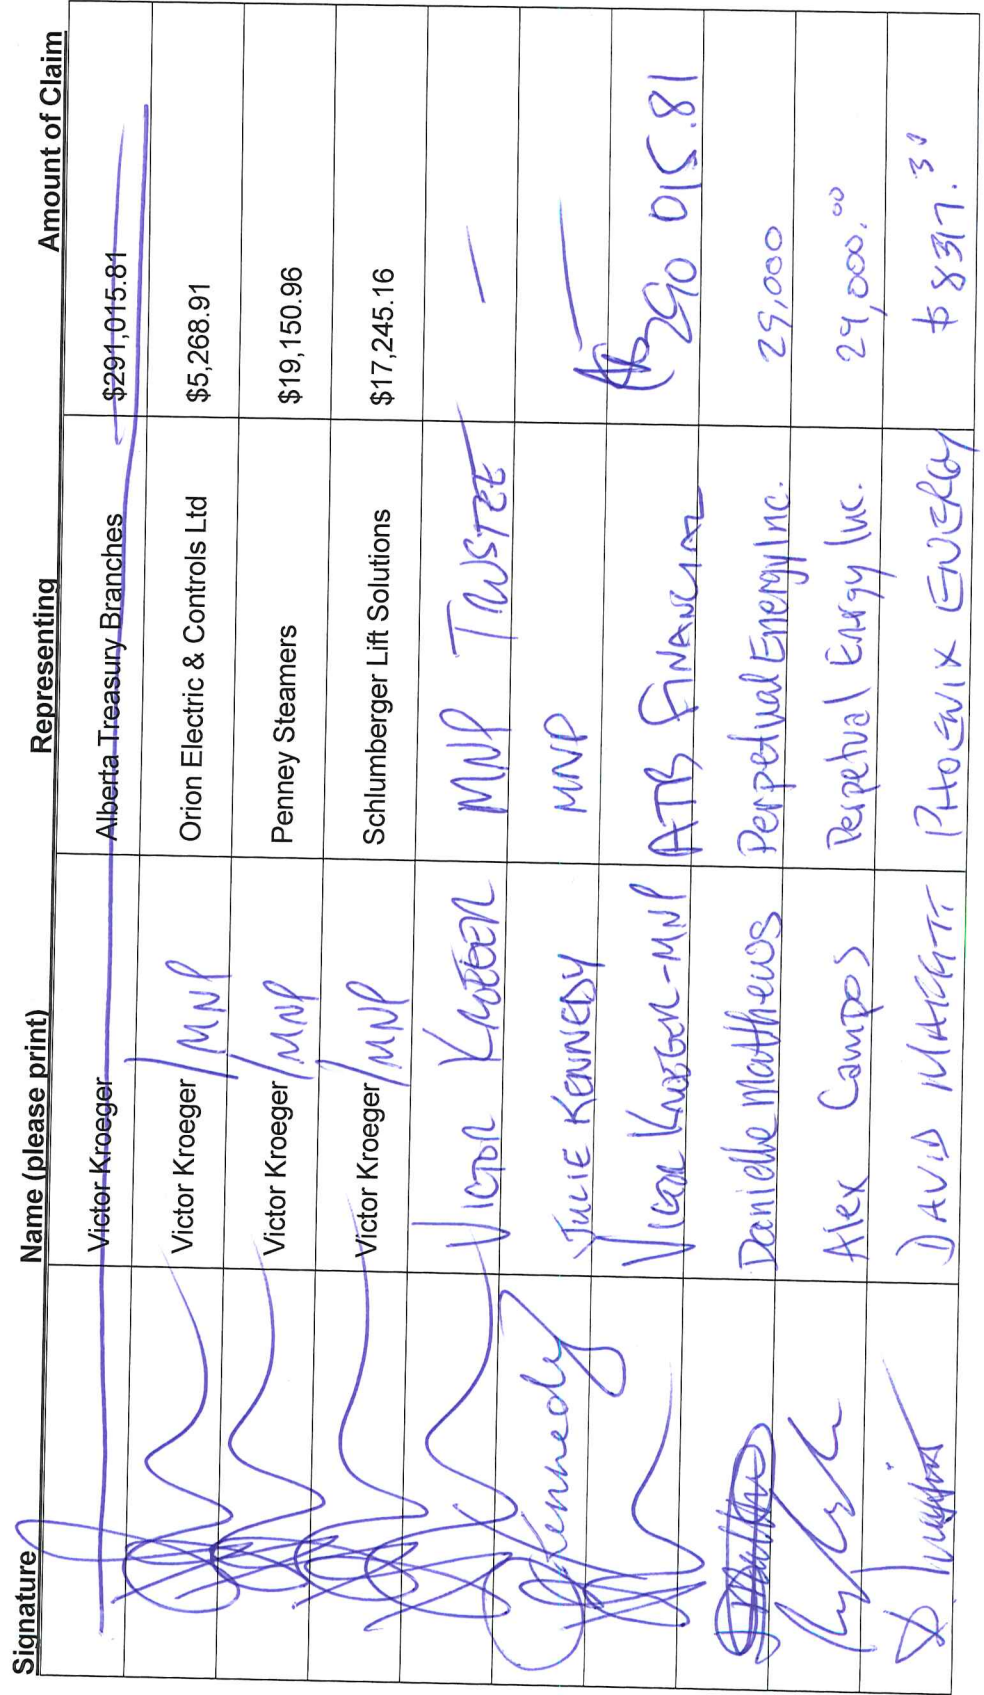 Signature Name (please print) Representing Amount of Claim
Victor Kroeger Alberta Treasury Branches $291,015.81
Victor Kroeger / MNP Orion Electric & Controls Ltd $5,268.91
Victor Kroeger / MNP Penney Steamers $19,150.96
Victor Kroeger / MNP Schlumberger Lift Solutions $17,245.16
VICTOR KROEGER MNP TRUSTEE —
Kennedy JULIE KENNEDY MNP —
VICTOR KROEGER-MNP ATB FINANCIAL $290 015.81
Danielle Matthews Perpetual Energy Inc. 29,000
Alex Campos Perpetual Energy Inc. 29,000.00
DAVID PHOENIX ENERGY $8317.